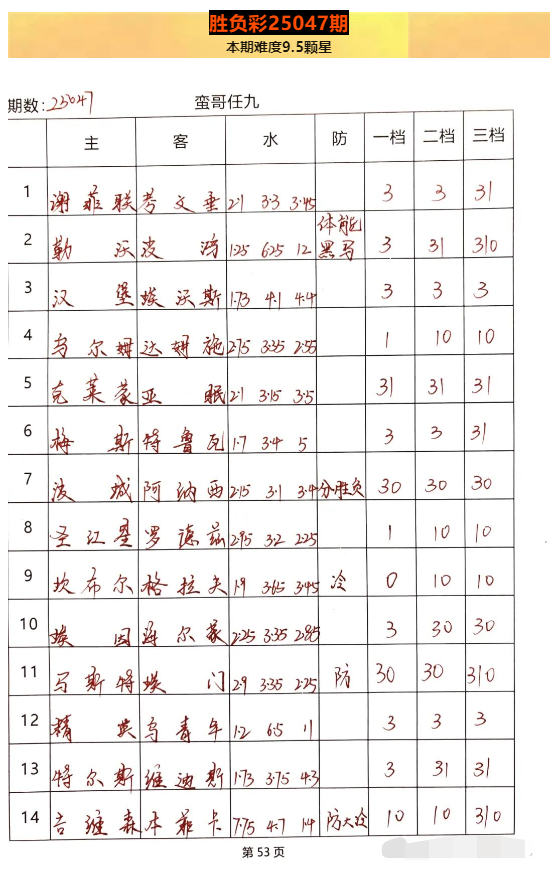 胜负彩25047期
本期难度9.5颗星
期数: 25047 蛮哥任九
主 客 水 防 一档 二档 三档
1 谢菲联 考文垂 2·1 3·3 3·45 3 3 31
2 勒沃 波鸿 1·25 6·25 12 体能黑马 3 31 310
3 汉堡 埃沃斯 1·73 4·1 4·4 3 3 3
4 乌尔姆 达姆施 2·75 3·35 2·55 1 10 10
5 克莱蒙 亚眠 2·1 3·15 3·5 31 31 31
6 梅斯 特鲁瓦 1·7 3·4 5 3 3 31
7 波城 阿纳西 2·15 3·1 3·4 分胜负 30 30 30
8 圣江星 罗德兹 2·95 3·2 2·25 1 10 10
9 坎布尔 格拉夫 1·9 3·65 3·45 冷 0 10 10
10 埃因 海尔蒙 2·25 3·35 2·85 3 30 30
11 马斯特 埃门 2·9 3·35 2·25 防 30 30 310
12 精英 乌青年 1·2 6·5 11 3 3 3
13 特尔斯 维迪斯 1·73 3·75 4·3 3 31 31
14 吉维森 本菲卡 7·75 4·7 1·4 防大冷 10 10 310
第 53 页